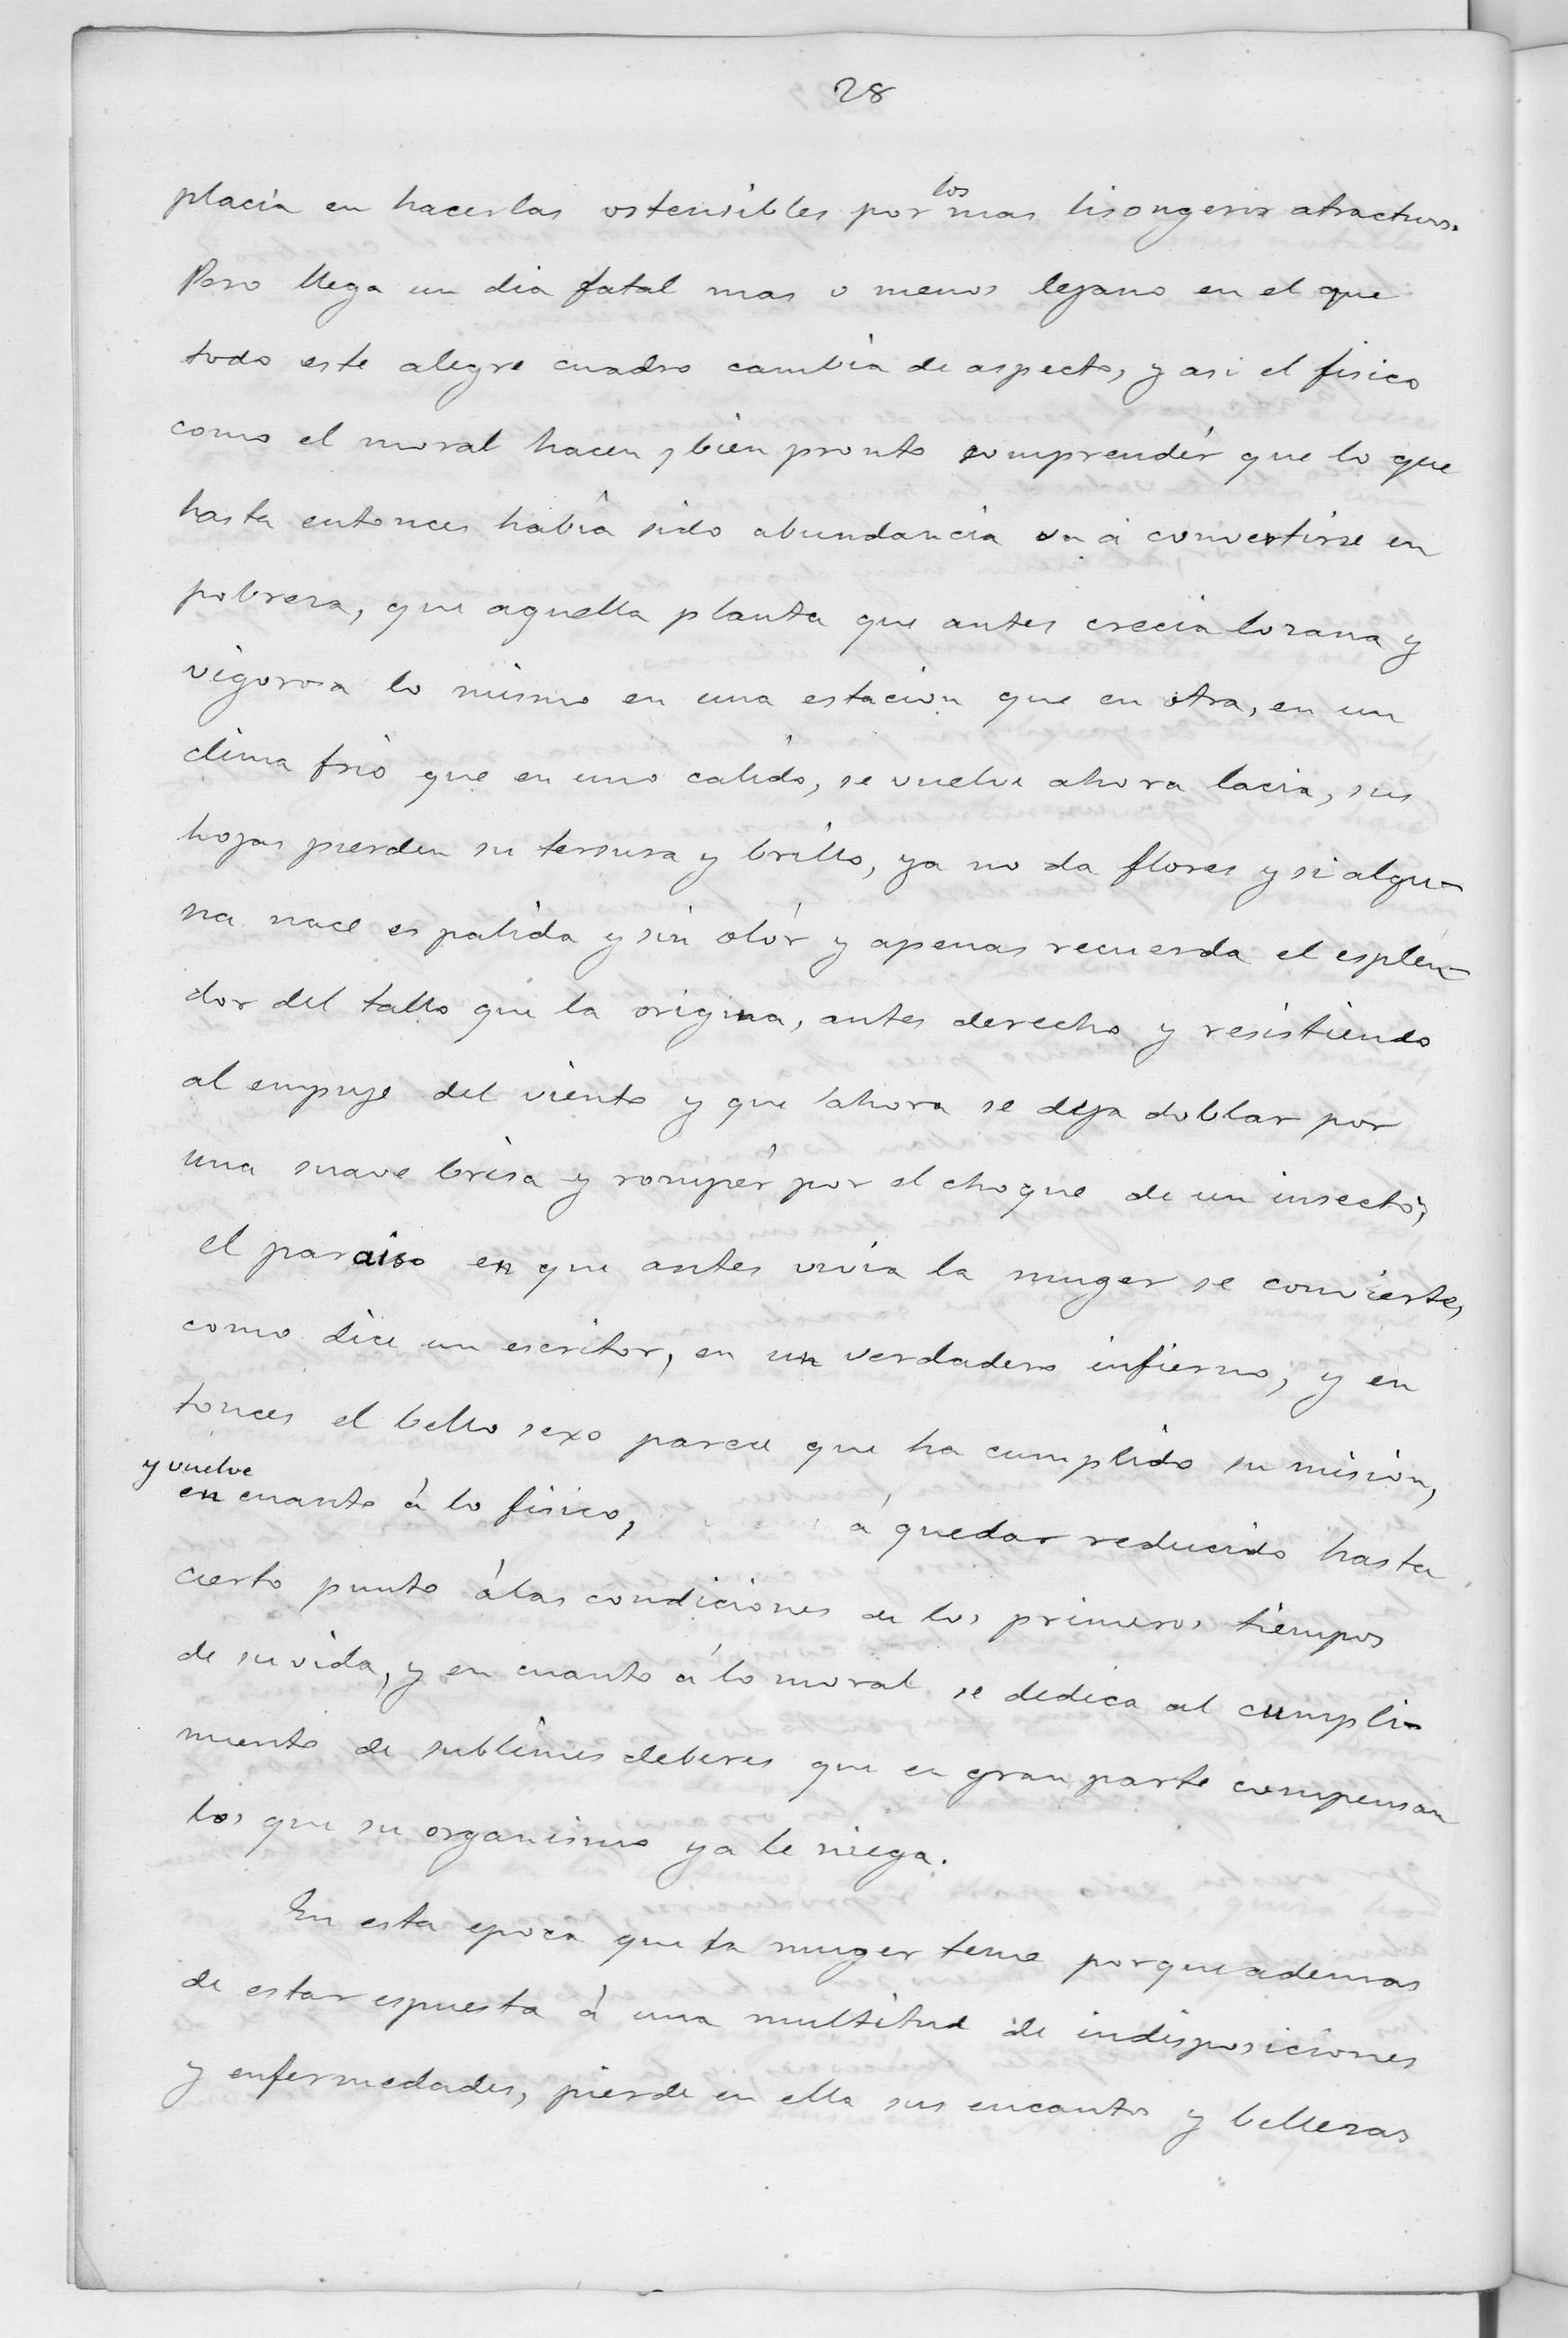 28
placia en hacerlas ostensibles por los mas lisongeros atractivos.
Pero llega un dia fatal mas o menos lejano en el que
todo este alegre cuadro cambia de aspecto, y asi el fisico
como el moral hacen, bien pronto comprender que lo que
hasta entonces habia sido abundancia va á convertirse en
pobreza, que aquella planta que antes crecia lozana y
vigorosa lo mismo en una estacion que en otra, en un
clima frio que en uno calido, se vuelve ahora lacia, sus
hojas pierden su tersura y brillo, ya no da flores y si algu-
na nace es palida y sin olor y apenas recuerda el esplen-
dor del tallo que la origina, antes derecho y resistiendo
al empuje del viento y que ahora se deja doblar por
una suave brisa y romper por el choque de un insecto;
el paraiso en que antes vivia la muger se convierte,
como dice un escritor, en un verdadero infierno, y en
tonces el bello sexo parece que ha cumplido su mision,
y vuelve
en cuanto á lo fisico, á quedar reducido hasta
cierto punto á las condiciones de los primeros tiempos
de su vida, y en cuanto á lo moral se dedica al cumpli-
miento de sublimes deberes que en gran parte compensan
los que su organismo ya le niega.
En esta epoca que la muger teme porque ademas
de estar espuesta á una multitud de indisposiciones
y enfermedades, pierde en ella sus encantos y bellezas